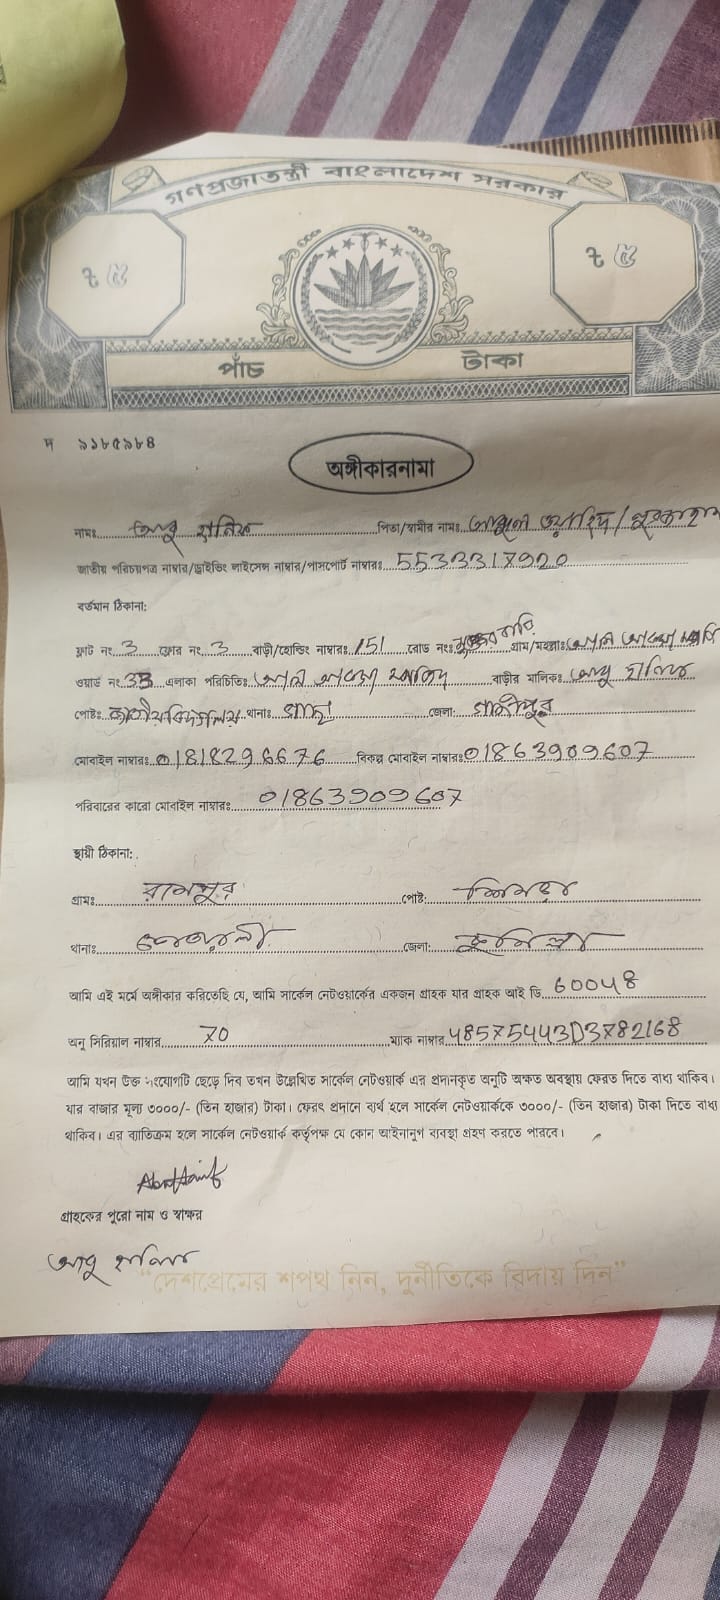 গণপ্রজাতন্ত্রী বাংলাদেশ সরকার
৳ ৫ ৳ ৫
পাঁচ টাকা
দ ৯১৮৫৯৮৪
অঙ্গীকারনামা
নামঃ আবু হানিফ পিতা/স্বামীর নামঃ আব্দুল ওয়াহিদ /
জাতীয় পরিচয়পত্র নাম্বার/ড্রাইভিং লাইসেন্স নাম্বার/পাসপোর্ট নাম্বারঃ 5533317920
বর্তমান ঠিকানা:
ফ্লাট নং 3 ফ্লোর নং 3 বাড়ী/হোল্ডিং নাম্বারঃ 151 রোড নংঃ গ্রাম/মহল্লাঃ
ওয়ার্ড নং 33 এলাকা পরিচিতিঃ বাড়ীর মালিকঃ আবু হানিফ
পোষ্টঃ জাতীয় বিশ্ববিদ্যালয় থানাঃ গাছা জেলা: গাজীপুর
মোবাইল নাম্বারঃ 01818296676 বিকল্প মোবাইল নাম্বারঃ 01863909607
পরিবারের কারো মোবাইল নাম্বারঃ 01863909607
স্থায়ী ঠিকানা:
গ্রামঃ রামপুর পোষ্ট:
থানাঃ জেলা: কুমিল্লা
আমি এই মর্মে অঙ্গীকার করিতেছি যে, আমি সার্কেল নেটওয়ার্কের একজন গ্রাহক যার গ্রাহক আই ডি 60048
অনু সিরিয়াল নাম্বার 70 ম্যাক নাম্বার 48575443D3782168
আমি যখন উক্ত সংযোগটি ছেড়ে দিব তখন উল্লেখিত সার্কেল নেটওয়ার্ক এর প্রদানকৃত অনুটি অক্ষত অবস্থায় ফেরত দিতে বাধ্য থাকিব।
যার বাজার মূল্য ৩০০০/- (তিন হাজার) টাকা। ফেরৎ প্রদানে ব্যর্থ হলে সার্কেল নেটওয়ার্ককে ৩০০০/- (তিন হাজার) টাকা দিতে বাধ্য
থাকিব। এর ব্যতিক্রম হলে সার্কেল নেটওয়ার্ক কর্তৃপক্ষ যে কোন আইনানুগ ব্যবস্থা গ্রহণ করতে পারবে।
গ্রাহকের পুরো নাম ও স্বাক্ষর
আবু হানিফ
"দেশপ্রেমের শপথ নিন, দুর্নীতিকে বিদায় দিন"